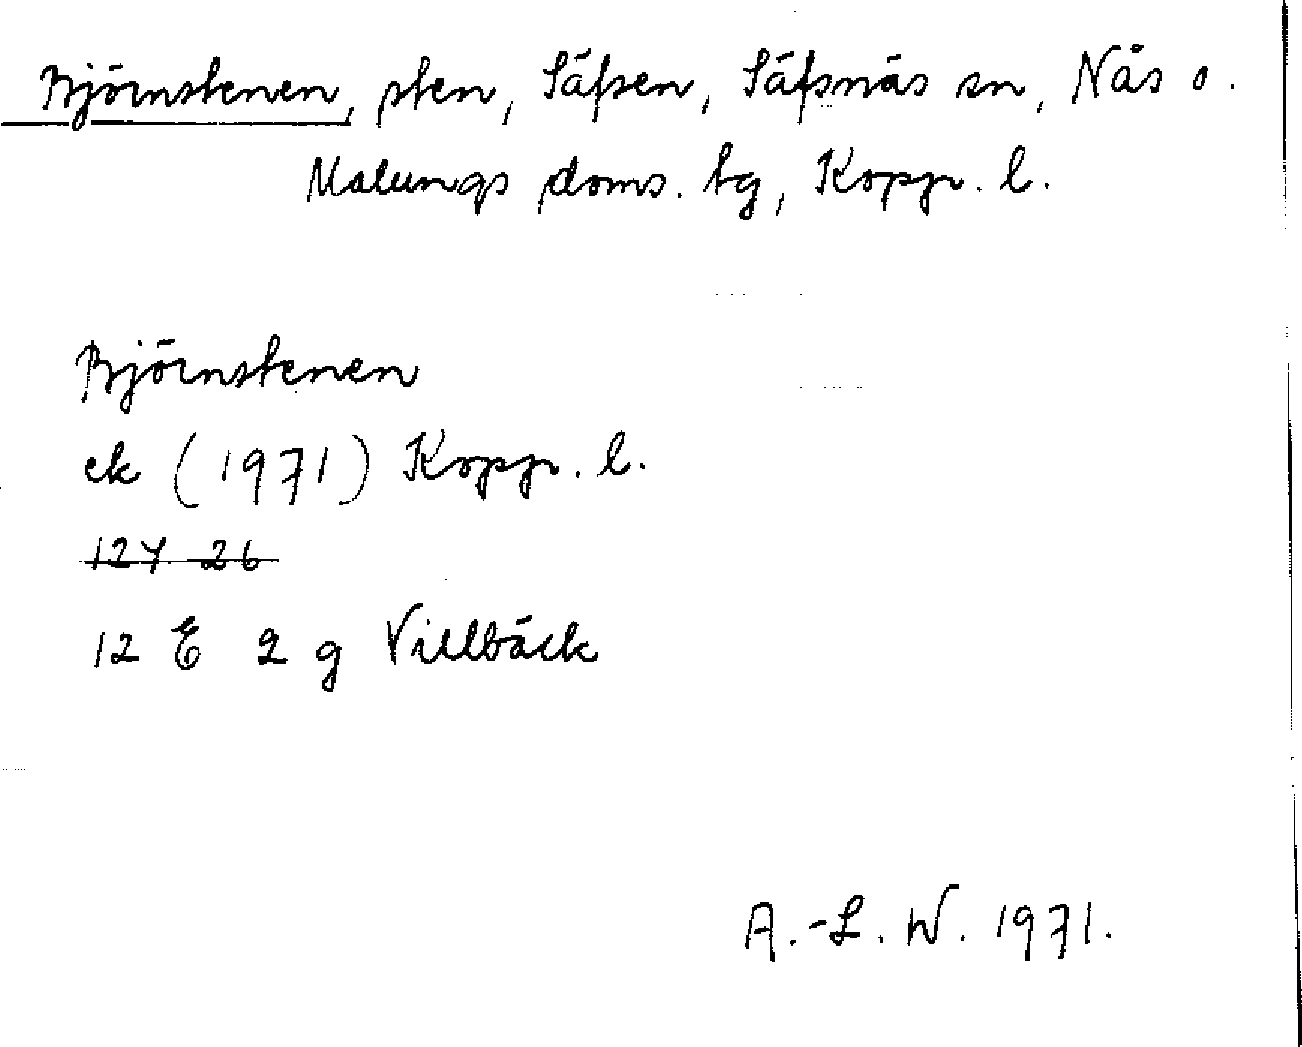 Björnstenen, sten, Säfsen, Säfsnäs sn, Nås o.
Malungs doms. tg, Kopp. l.
Björnstenen
ek (1971) Kopp. l.
12 E 2 g Villbäck
A.-L. W. 1971.